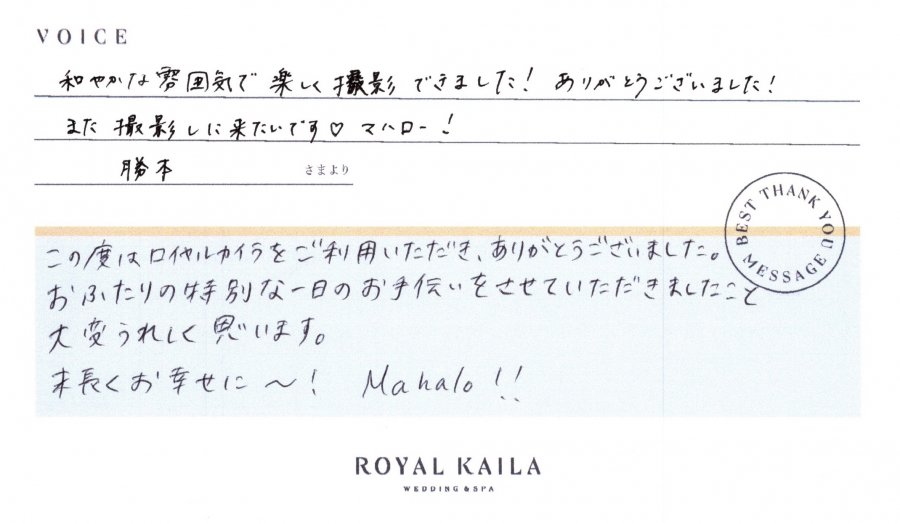 VOICE
和やかな雰囲気で楽しく撮影できました! ありがとうございました!
また撮影しに来たいです♡ マハロー!
勝本 さまより
BEST THANK YOU MESSAGE
この度はロイヤルカイラをご利用いただき、ありがとうございました。
おふたりの特別な一日のお手伝いをさせていただきましたこと
大変うれしく思います。
末長くお幸せに〜! Mahalo!!
ROYAL KAILA
WEDDING & SPA